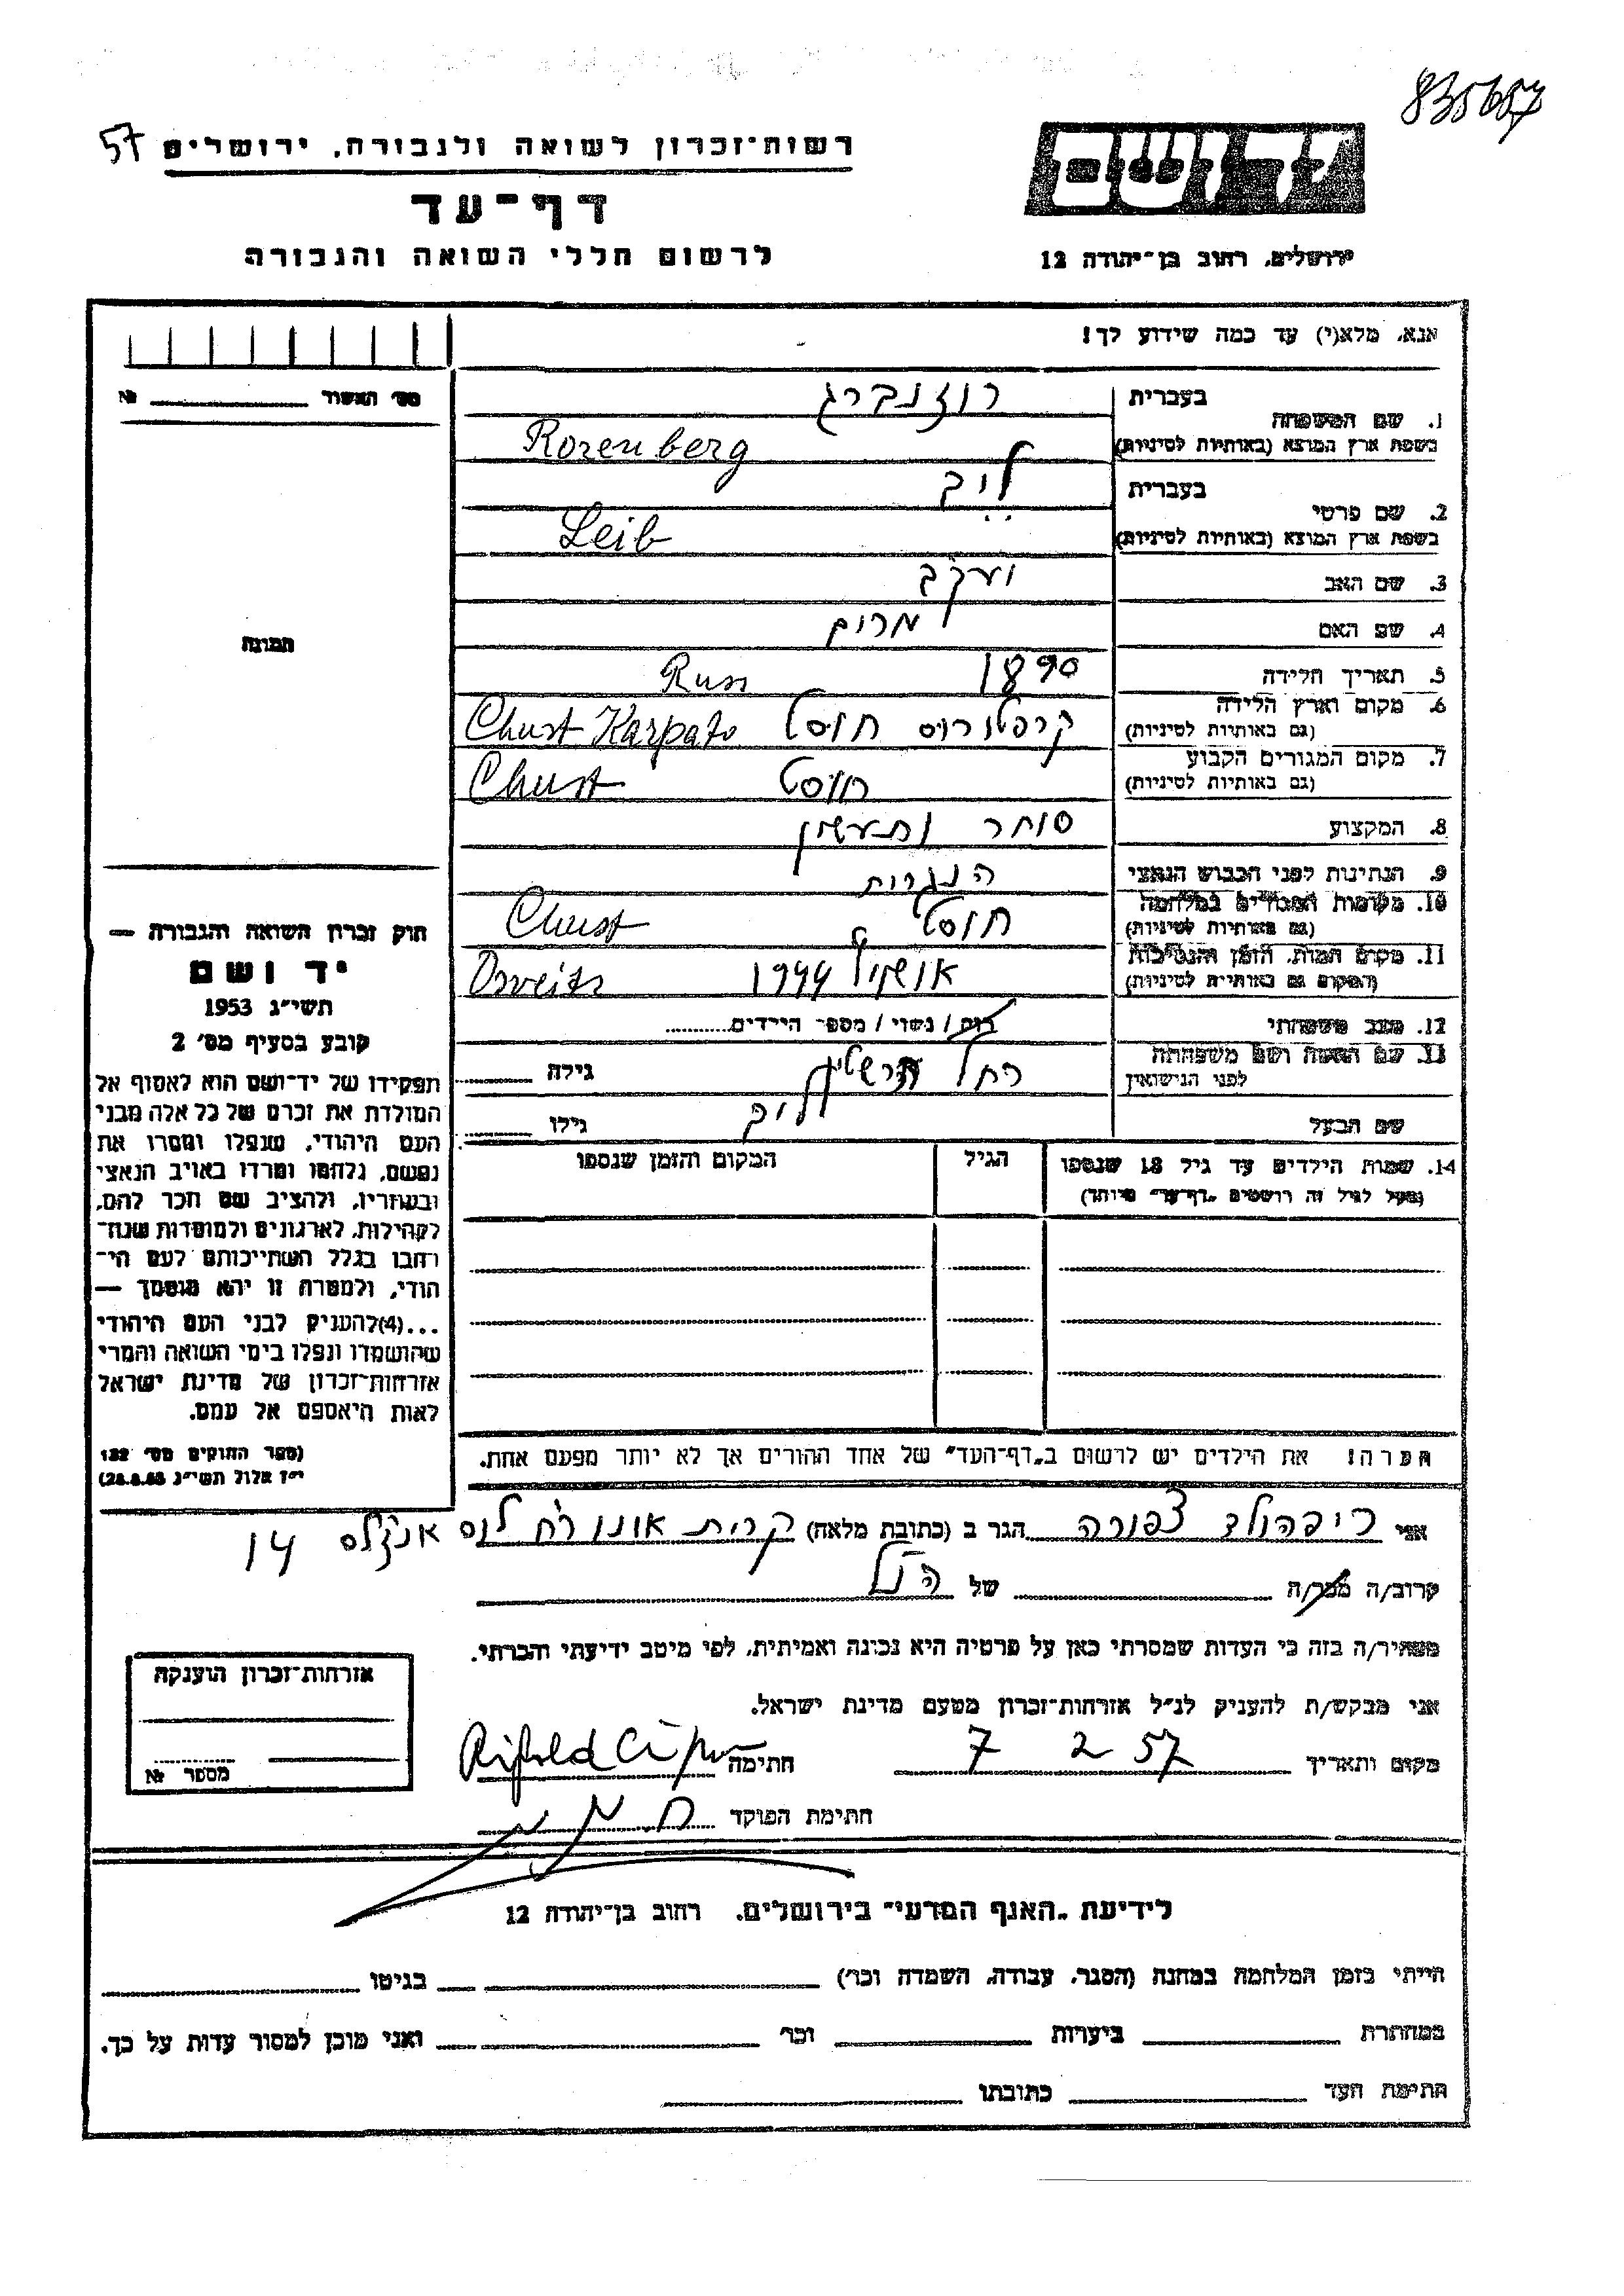 835657
רשות־זכרון לשואה ולגבורה, ירושלים 57
יד ושם
דף־עד
לרשום חללי השואה והגבורה
ירושלים, רחוב בן־יהודה 12
אנא, מלא(י) עד כמה שידוע לך!
מס׳ האשור № 
1. שם המשפחה בעברית רוזנברג
בשפת ארץ המוצא (באותיות לטיניות) Rozenberg
2. שם פרטי בעברית לייב
בשפת ארץ המוצא (באותיות לטיניות) Leib
3. שם האב יעקב
4. שם האם מרים
תמונה
5. תאריך הלידה 1890
6. מקום וארץ הלידה (גם באותיות לטיניות) קרפטורוס חוסט Chust Karpato Russ
7. מקום המגורים הקבוע (גם באותיות לטיניות) חוסט Chust
8. המקצוע סוחר ותעשין
9. הנתינות לפני הכבוש הנאצי הנגרית
10. מקומות המגורים במלחמה (גם באותיות לטיניות) חוסט Chust
11. מקום המות, הזמן והנסיבות (המקום גם באותיות לטיניות) 1944 Osveits
12. מצב משפחתי רווק / נשוי / מספר הילדים
13. שם האשה ושם משפחתה לפני הנישואין רחל גילה
שם הבעל לייב גילו
14. שמות הילדים עד גיל 18 שנספו הגיל המקום והזמן שנספו
(מעל לגיל זה רושמים „דף־עד״ מיוחד)
חוק זכרון השואה והגבורה —
יד ושם
תשי״ג 1953
קובע בסעיף מס׳ 2
תפקידו של יד־ושם הוא לאסוף אל
המולדת את זכרם של כל אלה מבני
העם היהודי, שנפלו ומסרו את
נפשם, נלחמו ומרדו באויב הנאצי
ובעוזריו, ולהציב שם וזכר להם,
לקהילות, לארגונים ולמוסדות שנח־
רבו בגלל השתייכותם לעם הי־
הודי, ולמטרה זו יהא מוסמך —
...(4) להעניק לבני העם היהודי
שהושמדו ונפלו בימי השואה והמרי
אזרחות־זכרון של מדינת ישראל
לאות היאספם אל עמם.
(ספר החוקים מס׳ 132
י״ז אלול תשי״ג 28.8.53)
הערה! את הילדים יש לרשום ב„דף־העד״ של אחד ההורים אך לא יותר מפעם אחת.
אני ריפהולד צפורה הגר ב (כתובת מלאה) קרית אונו רח לוס אנג׳לס 14
קרוב/ה מכר/ה של הנ״ל
מצהיר/ה בזה כי העדות שמסרתי כאן על פרטיה היא נכונה ואמיתית, לפי מיטב ידיעתי והכרתי.
אני מבקש/ת להעניק לנ״ל אזרחות־זכרון מטעם מדינת ישראל.
מקום ותאריך 7 2 57 חתימה
חתימת הפוקד
אזרחות־זכרון הוענקה
מספר №
לידיעת „האגף המדעי״ בירושלים, רחוב בן־יהודה 12
הייתי בזמן המלחמה במחנה (הסגר, עבודה, השמדה וכר׳) בגיטו
במחתרת ביערות וכר׳ ואני מוכן למסור עדות על כך.
חתימת העד כתובתו